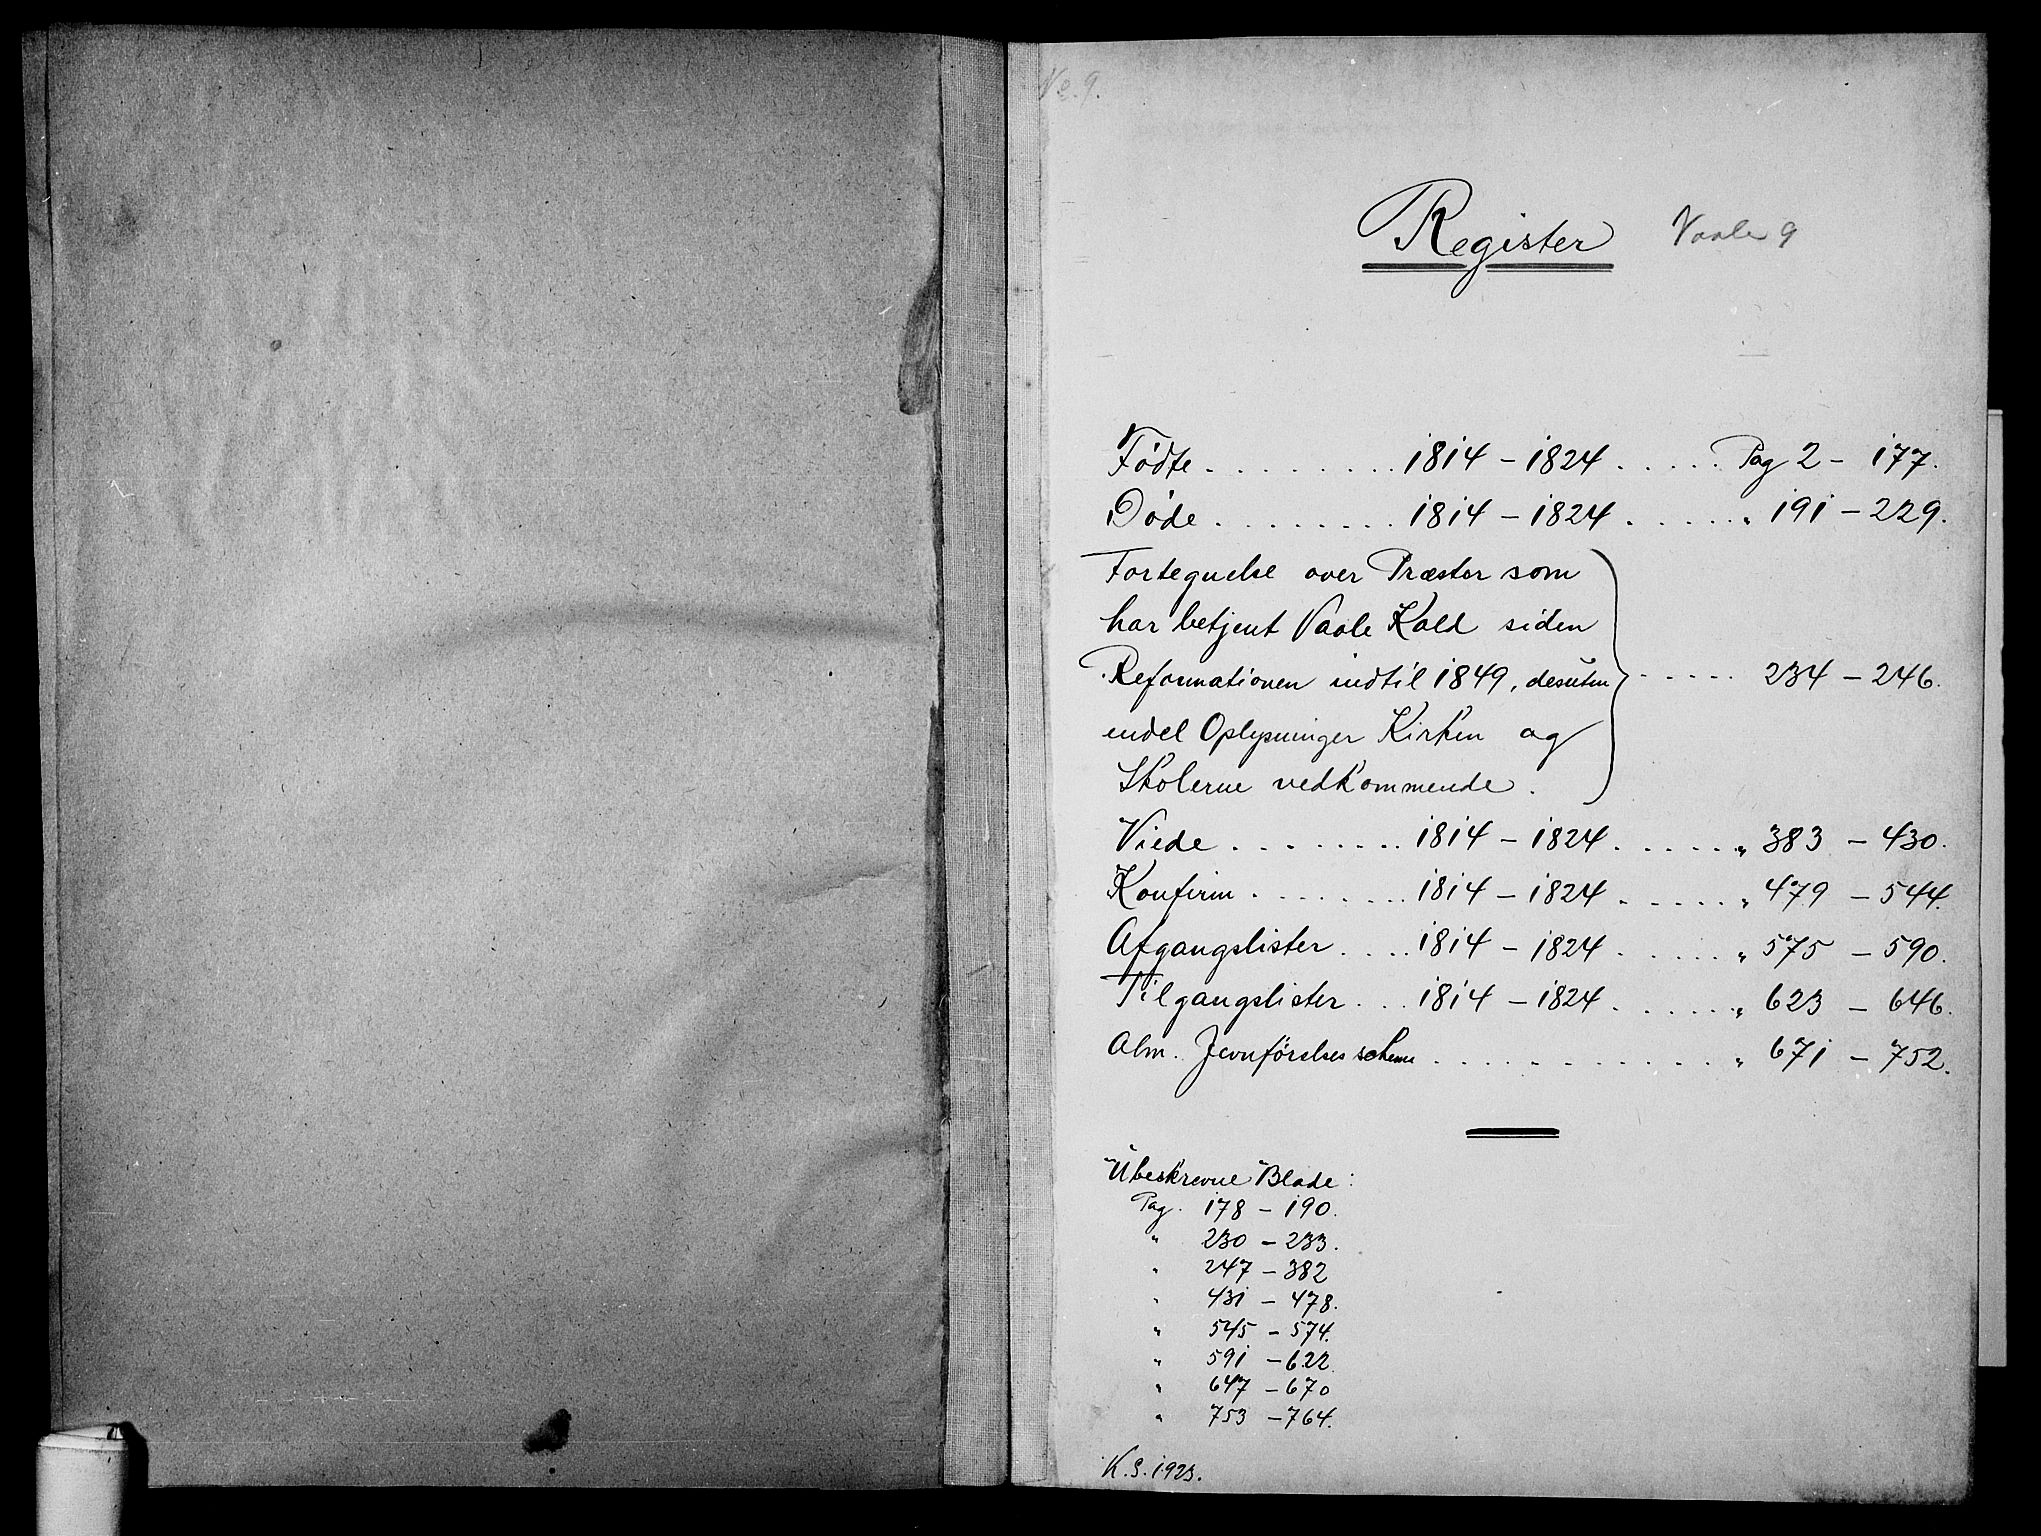 No. 9.
Register Vaale 9
Fødte . . . . . . . . . 1814 - 1824 . . . . . Pag 2 - 177.
Døde . . . . . . . . 1814 - 1824 . . . . . . " 191 - 229.
Fortegnelse over Præster som
har betjent Vaale Kald siden
Reformationen indtil 1849, desuten . . . . . 234 - 246.
endel Oplysninger Kirken og
Skolerne vedkommende.
Viede . . . . . . . . 1814 - 1824 . . . . . . " 383 - 430.
Konfirm . . . . . . . . 1814 - 1824 . . . . . . " 479 - 544.
Afgangslister . . . . 1814 - 1824 . . . . . . " 575 - 590.
Tilgangslister . . . 1814 - 1824 . . . . . . " 623 - 646.
Alm. Jevnförelses schema . . . . . . . . . . . . " 671 - 752.
Ubeskrevne Blade:
Pag. 178 - 190.
" 230 - 233.
" 247 - 382
" 431 - 478.
" 545 - 574.
" 591 - 622
" 647 - 670
" 753 - 764.
K. S. 1923.